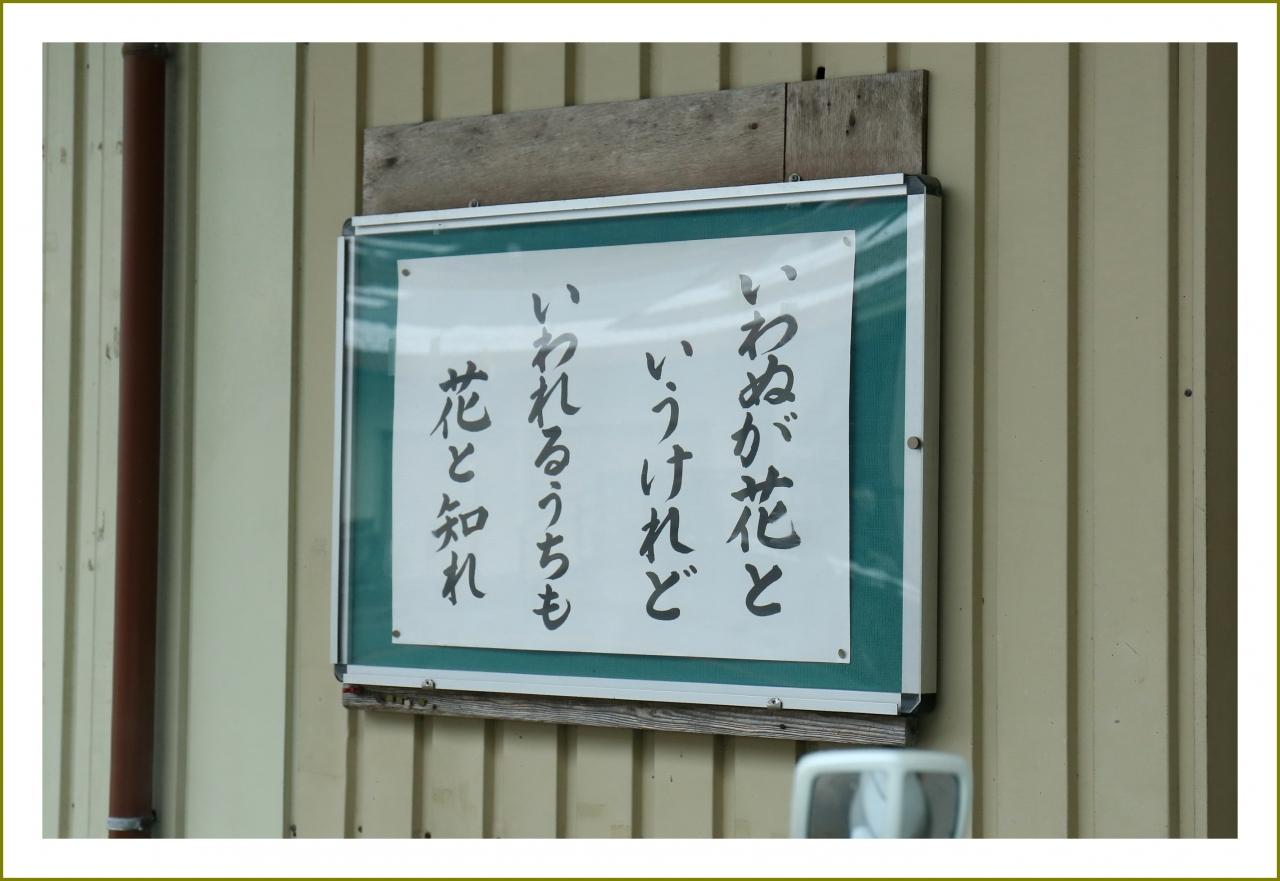 いわぬが花と
いうけれど
いわれるうちも
花と知れ